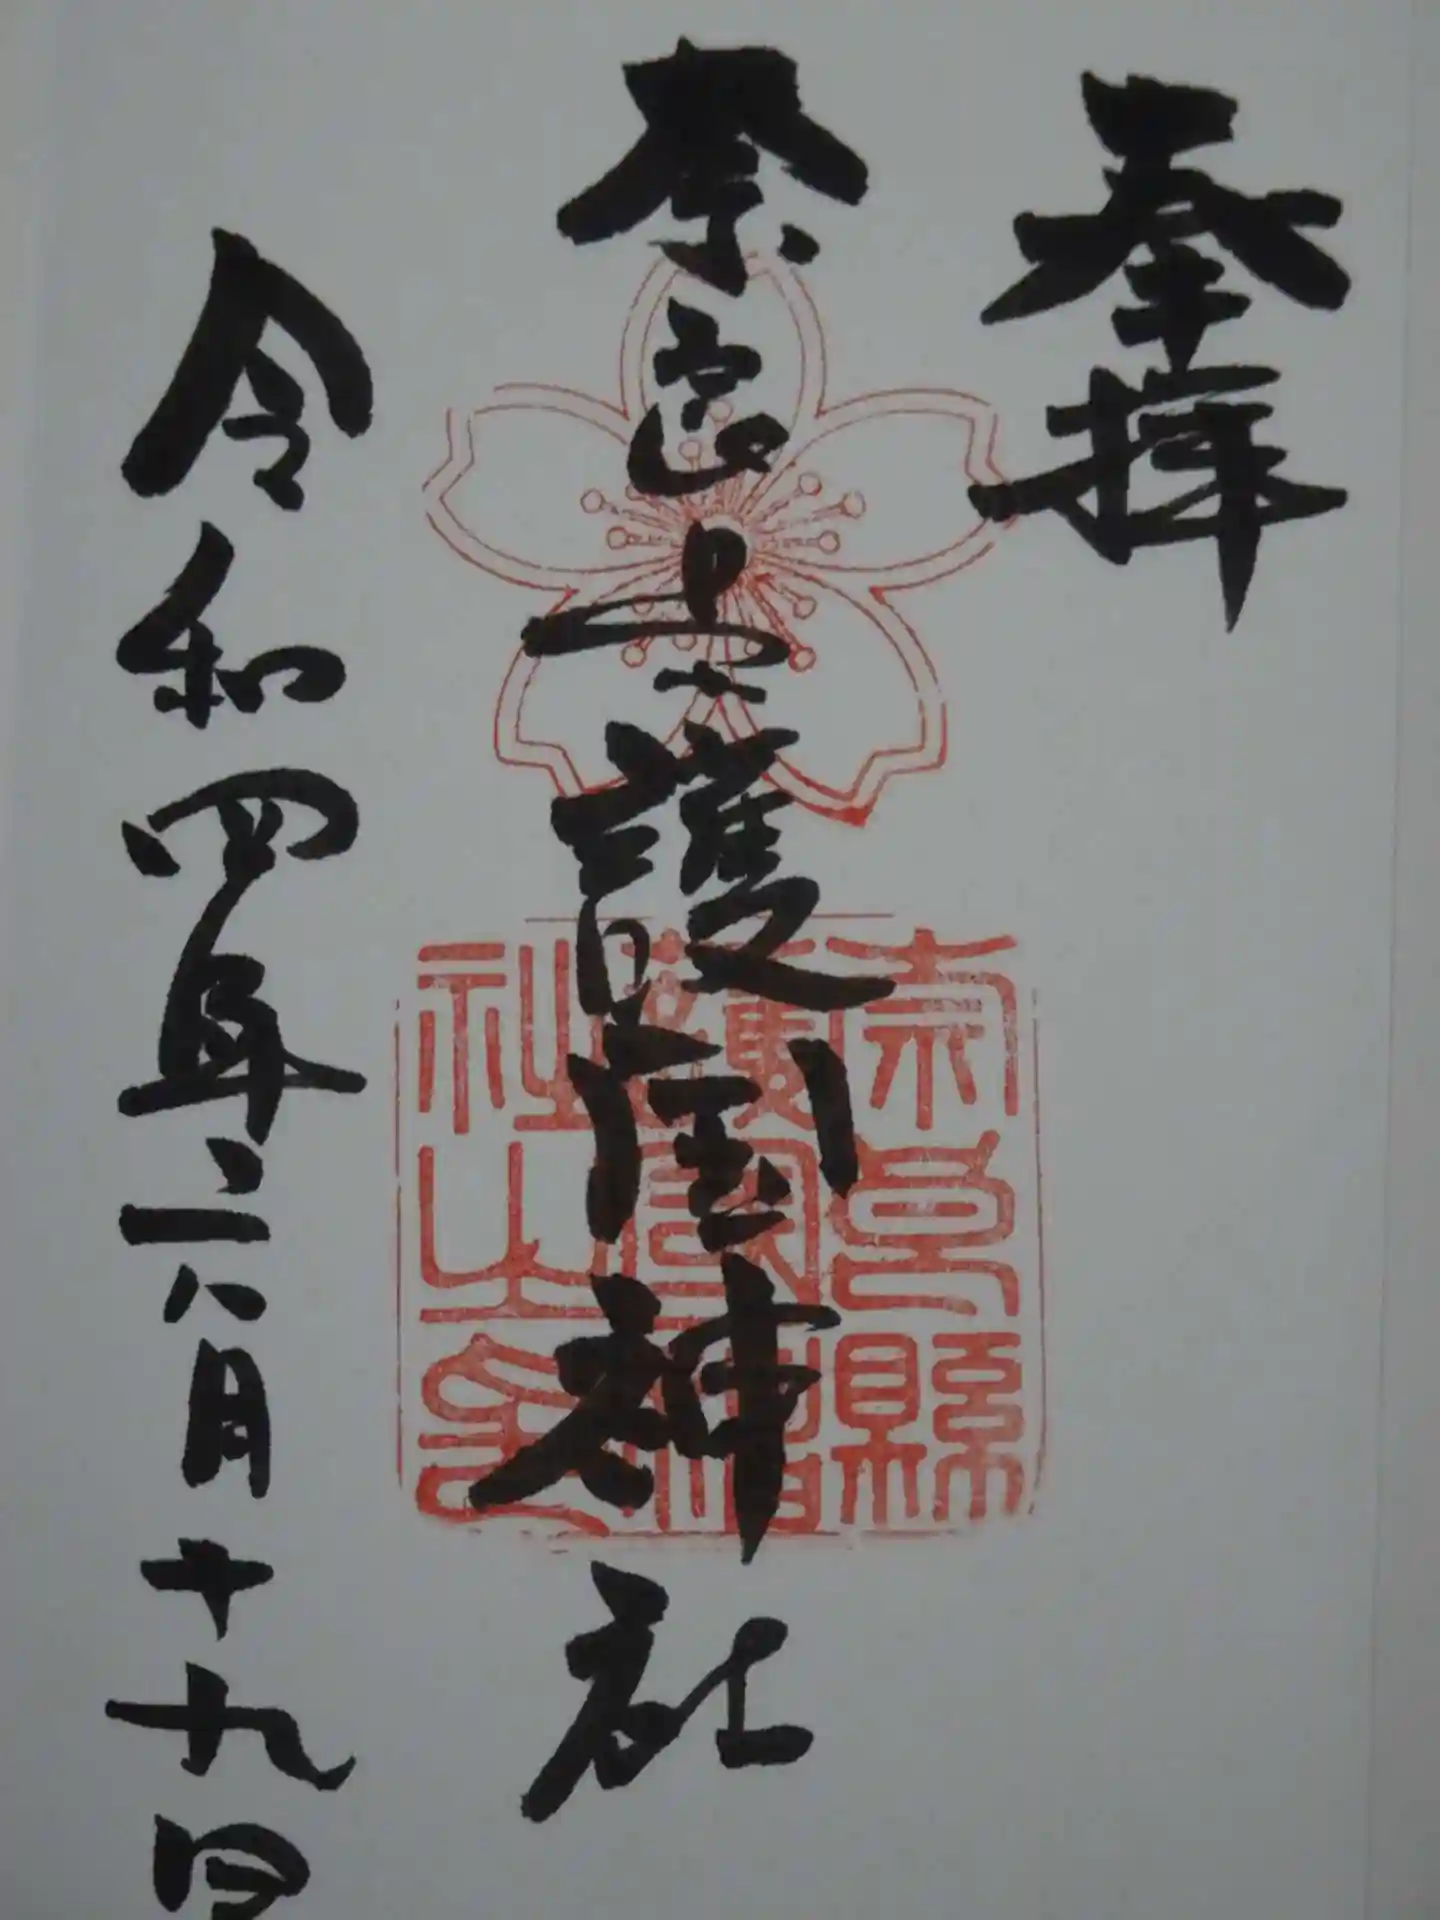 奉拝
奈良県護国神社
奈良縣
護國神
社之印
令和四年六月十九日